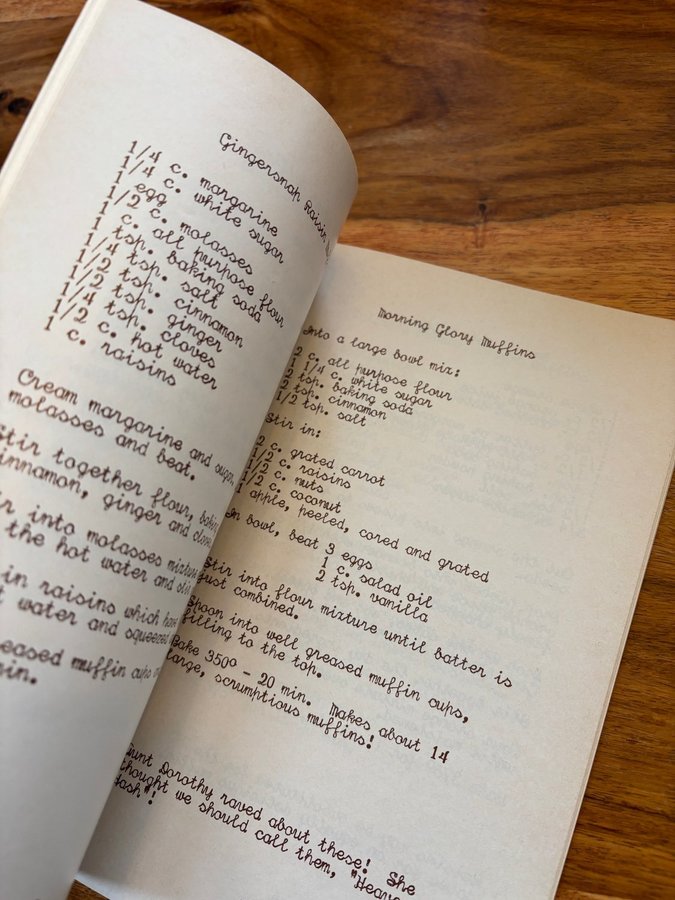 Gingersnap Raisin
1/4 c. margarine
1/4 c. white sugar
1 egg
1/2 c. molasses
1 c. all purpose flour
1 tsp. baking soda
1/4 tsp. salt
1/2 tsp. cinnamon
1/2 tsp. ginger
1/4 tsp. cloves
1/2 c. hot water
1 c. raisins
Cream margarine and sugar,
molasses and beat.
Stir together flour,
cinnamon, ginger and
into molasses mixture
the hot water and
in raisins which
water and squeezed
greased muffin cups
min.
Morning Glory Muffins
Into a large bowl mix:
2 c. all purpose flour
1 1/4 c. white sugar
2 tsp. baking soda
2 tsp. cinnamon
1/2 tsp. salt
Stir in:
2 c. grated carrot
1/2 c. raisins
1/2 c. nuts
1/2 c. coconut
1 apple, peeled, cored and grated
In bowl, beat 3 eggs
1 c. salad oil
2 tsp. vanilla
Stir into flour mixture until batter is
just combined.
Spoon into well greased muffin cups,
filling to the top.
Bake 350° - 20 min. Makes about 14
large, scrumptious muffins!
Aunt Dorothy raved about these! She
thought we should call them,
Hash"!